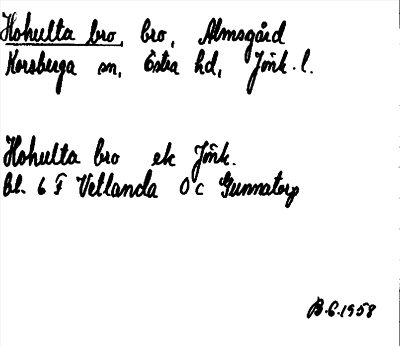 Hohulta bro, bro, Almsgård
Korsberga sn, Östra hd, Jönk. l.
Hohulta bro ek Jönk.
bl. 6 F Vetlanda O c Gunnatorp
B.G. 1958